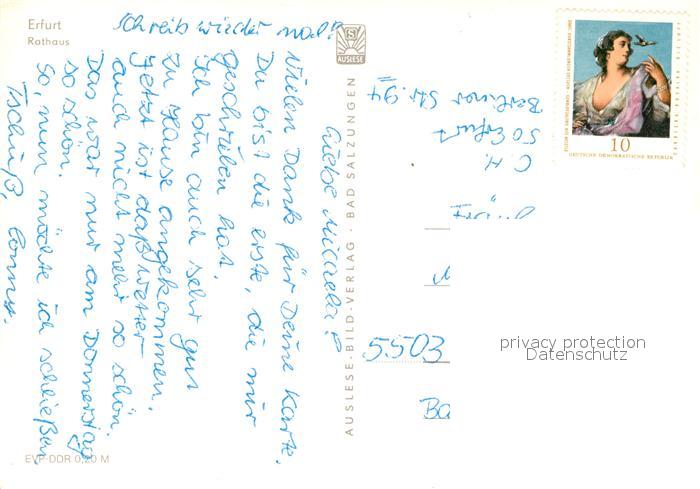 Erfurt
Rathaus
Schreib wieder mal!
AUSLESE
Liebe Micaela!
Vielen Dank für Deine Karte.
Du bist die erste, die mir
geschrieben hat.
Ich bin auch sehr gut
zu Hause angekommen.
Jetzt ist daß Wetter
auch nicht mehr so schön.
Das war nur am Donnerstag
so schön.
So, nun möchte ich schließen
Tschüß, Conny.
EVP-DDR 0,20 M
AUSLESE-BILD-VERLAG · BAD SALZUNGEN
C. H.
50 Erfurt
Berliner Str. 94
5503
Ba
10
DEUTSCHE DEMOKRATISCHE REPUBLIK
privacy protection
Datenschutz